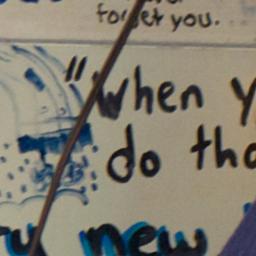 forget you.
"when y
do tha
ry new